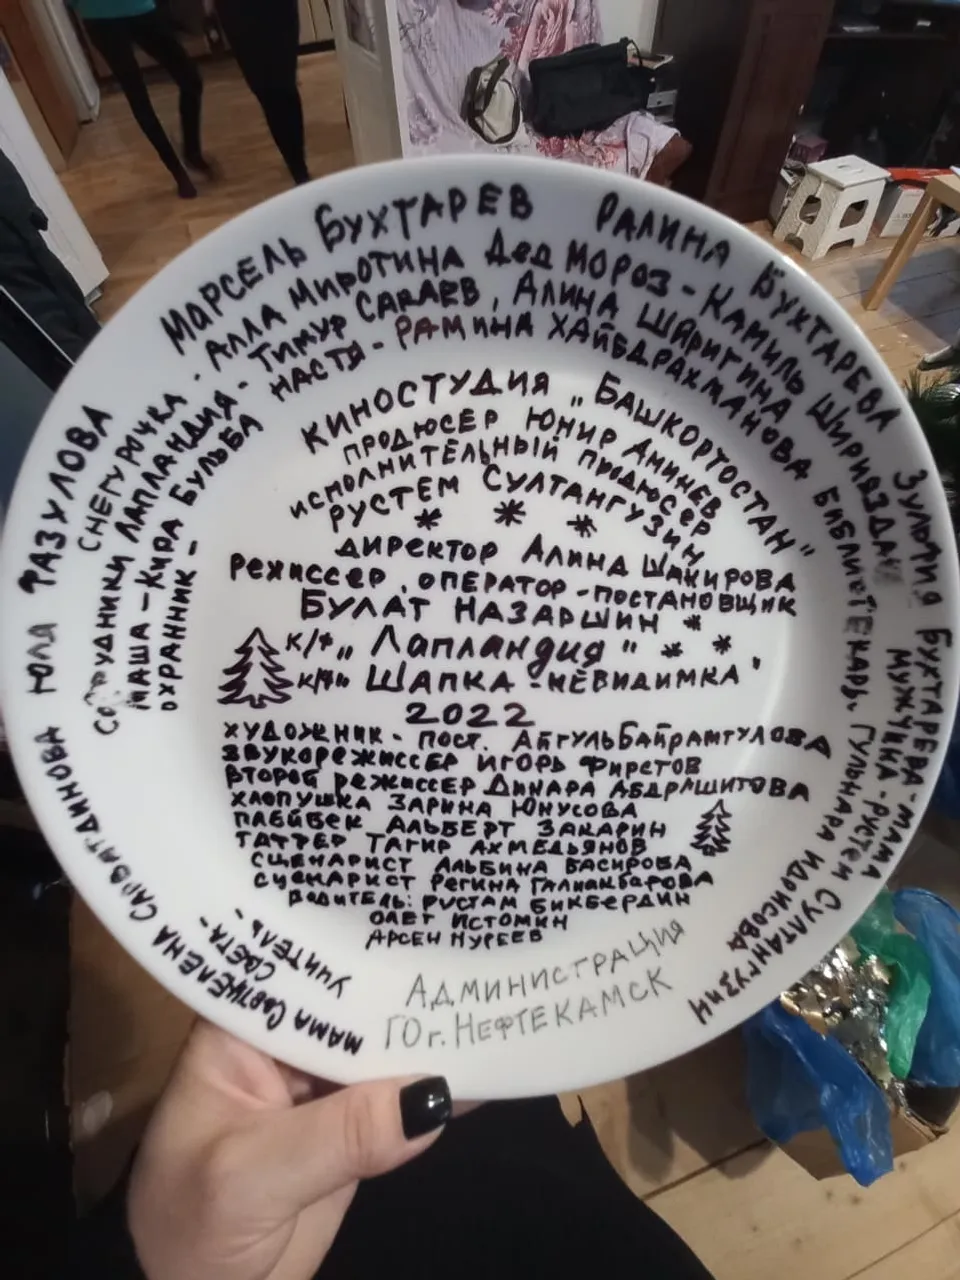 Марсель Бухтарев Ралина Бухтарева Зульфия Бухтарева-мама
Снегурочка - Алла Миротина Дед Мороз - Камиль Шириязданов
Мужчина - Рустем Султангузин
Сотрудники Лапландия - Тимур Сараев, Алина Шаригина Библиотекарь - Гульнара Идрисова
Маша - Кира Бульба Настя - Рамина Хайбдрахманова
Охранник -
Юля Тазулова
Мама Сорткелена
Света -
Учитель,
КИНОСТУДИЯ „Башкортостан"
продюсер Юнир Аминев
исполнительный продюсер
Рустем Султангузин
директор Алина Шакирова
Режиссер, оператор-постановщик
Булат Назаршин
к/ф „Лапландия"
к/ф „Шапка-невидимка"
2022
художник-пост. Айгуль Байрамгулова
звукорежиссер Игорь Фиретов
второй режиссер Динара Абдрашитова
хлопушка Зарина Юнусова
плейбек Альберт Закарин
Таттрер Тагир Ахмедьянов
сценарист Альбина Басирова
сценарист Регина Галиакбарова
водитель: Рустам Бикбердин
Олег Истомин
Арсен Нуреев
Администрация
ГО г. Нефтекамск